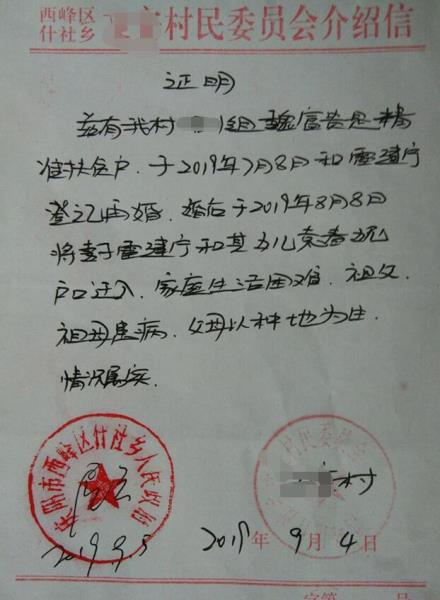 西峰区
什社乡
村民委员会介绍信
证明
兹有我村 组魏富贵是精
准扶贫户，于2019年7月8日和雷建宁
登记再婚，婚后于2019年8月8日
将妻子雷建宁和其 儿袁 
户口迁入，家庭生活困难，祖父
祖母患病，父母以种地为生，
情况属实。
庆阳市西峰区什社乡人民政府
2019.9.5
村民委员会
村
2019年9月4日
字第